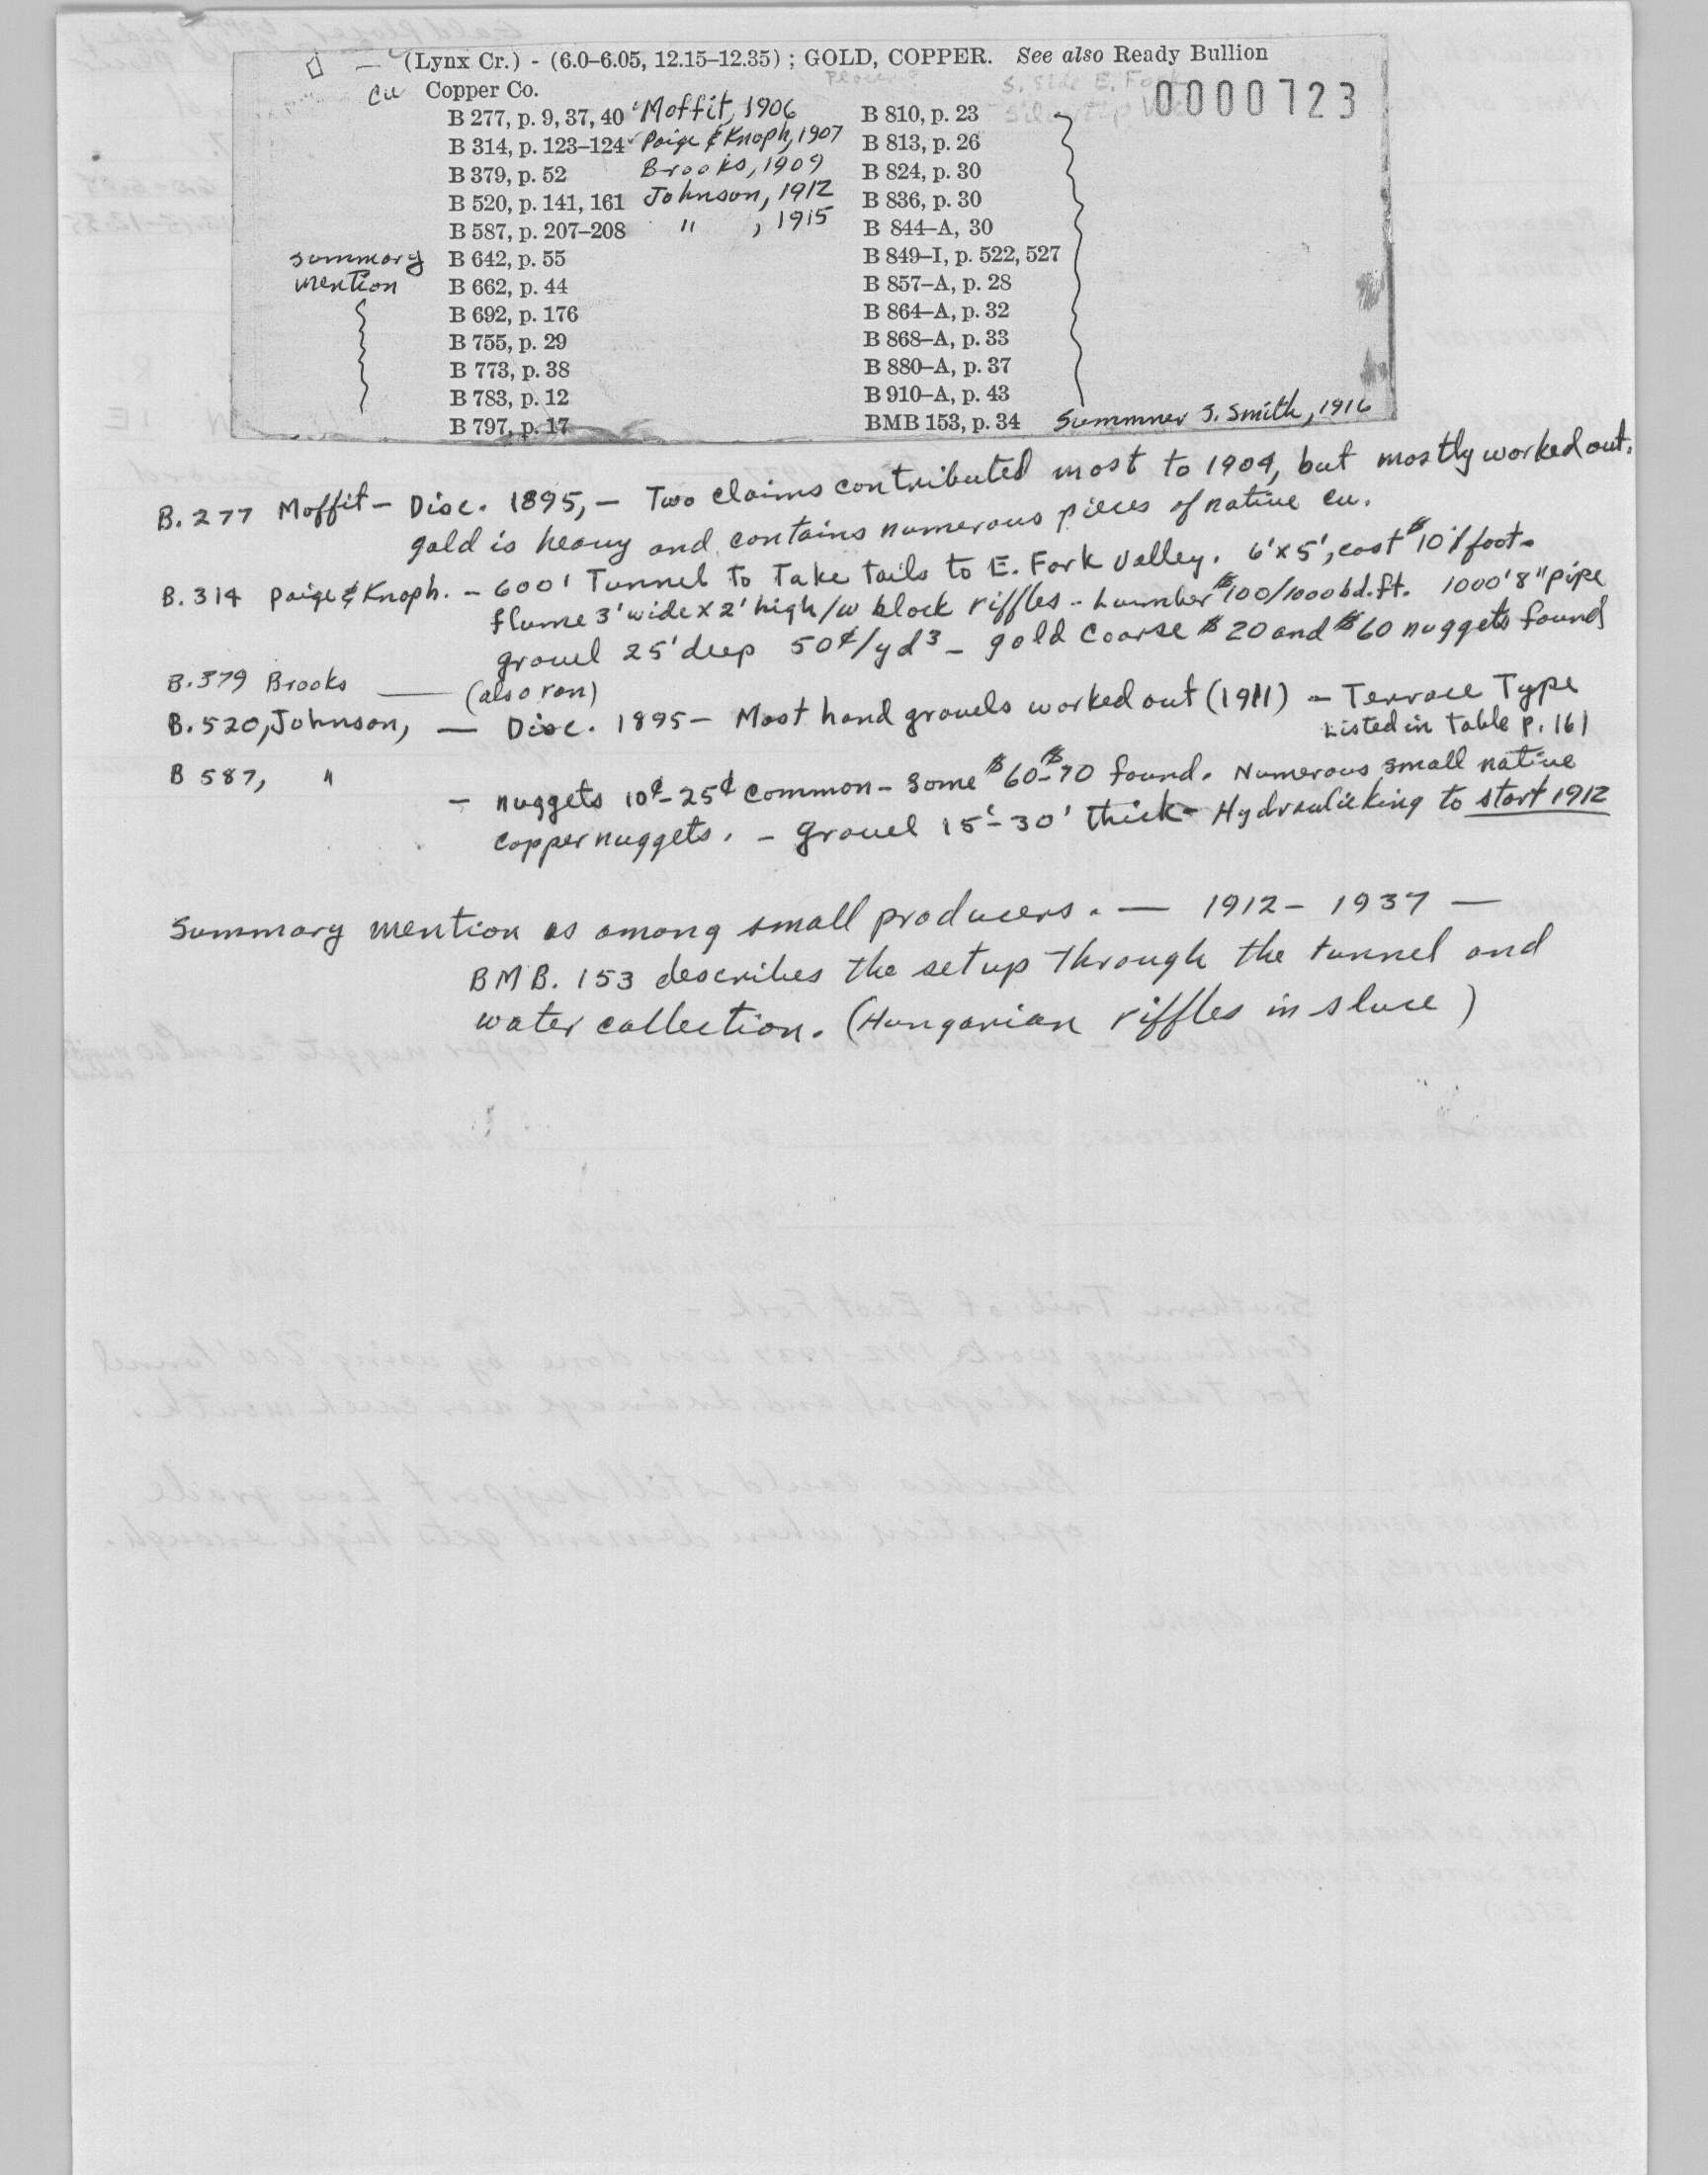 (Lynx Cr.) - (6.0–6.05, 12.15–12.35) ; GOLD, COPPER. See also Ready Bullion
Cu Copper Co.
0000723
B 277, p. 9, 37, 40 Moffit, 1906
B 314, p. 123–124 Paige & Knoph, 1907
B 379, p. 52 Brooks, 1909
B 520, p. 141, 161 Johnson, 1912
B 587, p. 207–208 " , 1915
summary B 642, p. 55
mention B 662, p. 44
B 692, p. 176
B 755, p. 29
B 773, p. 38
B 783, p. 12
B 797, p. 17
B 810, p. 23
B 813, p. 26
B 824, p. 30
B 836, p. 30
B 844–A, 30
B 849–I, p. 522, 527
B 857–A, p. 28
B 864–A, p. 32
B 868–A, p. 33
B 880–A, p. 37
B 910–A, p. 43
BMB 153, p. 34 Summner S. Smith, 1916
B. 277 Moffit – Disc. 1895, – Two claims contributed most to 1904, but mostly worked out.
gold is heavy and contains numerous pieces of native cu.
B. 314 Paige & Knoph. – 600' Tunnel to Take tails to E. Fork Valley. 6'x5', cost $10/foot.
flume 3' wide x 2' high /w block riffles – Lumber $100/1000 bd.ft. 1000' 8" pipe
gravel 25' deep 50¢/yd3 – gold coarse $20 and $60 nuggets found
B. 379 Brooks — (also ran)
B. 520, Johnson, — Disc. 1895 – Most hand gravels worked out (1911) – Terrace Type
Listed in table p. 161
B 587, " – nuggets 10¢–25¢ common – some $60–$70 found. Numerous small native
copper nuggets. – gravel 15'–30' thick – Hydraulicking to start 1912
Summary mention as among small producers. — 1912 – 1937 —
BMB. 153 describes the setup through the tunnel and
water collection. (Hungarian riffles in sluce)